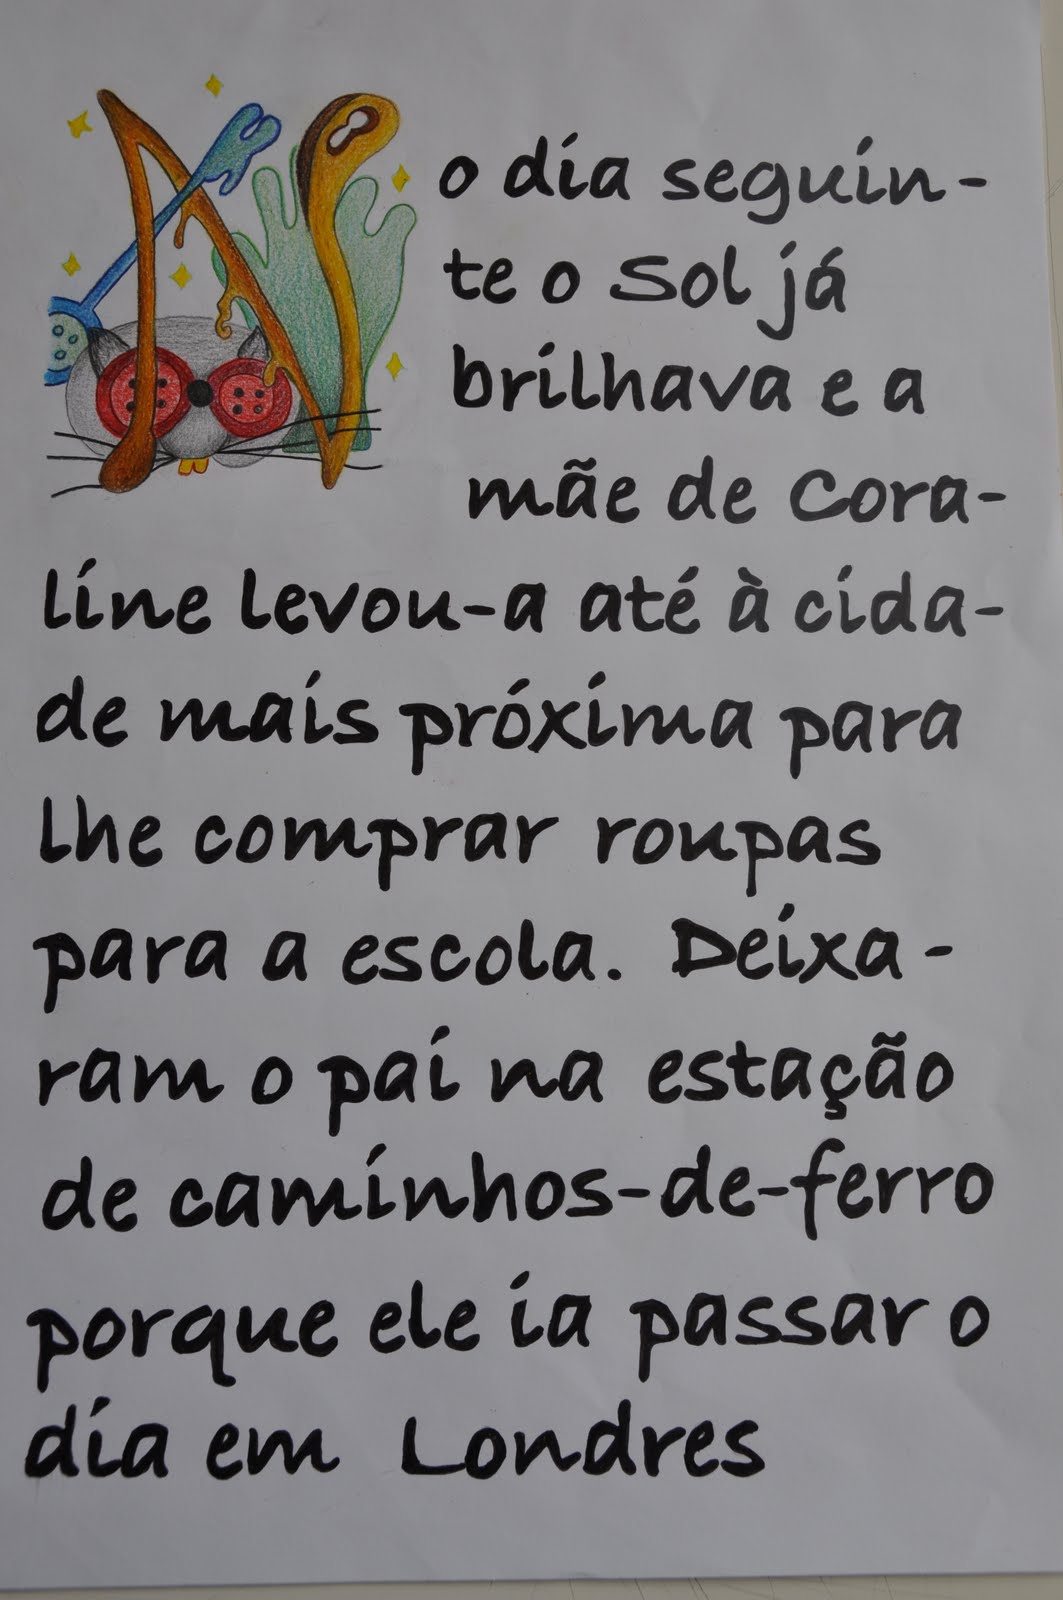 No dia seguin-
te o Sol já
brilhava e a
mãe de Cora-
line levou-a até à cida-
de mais próxima para
lhe comprar roupas
para a escola. Deixa-
ram o pai na estação
de caminhos-de-ferro
porque ele ia passar o
dia em Londres